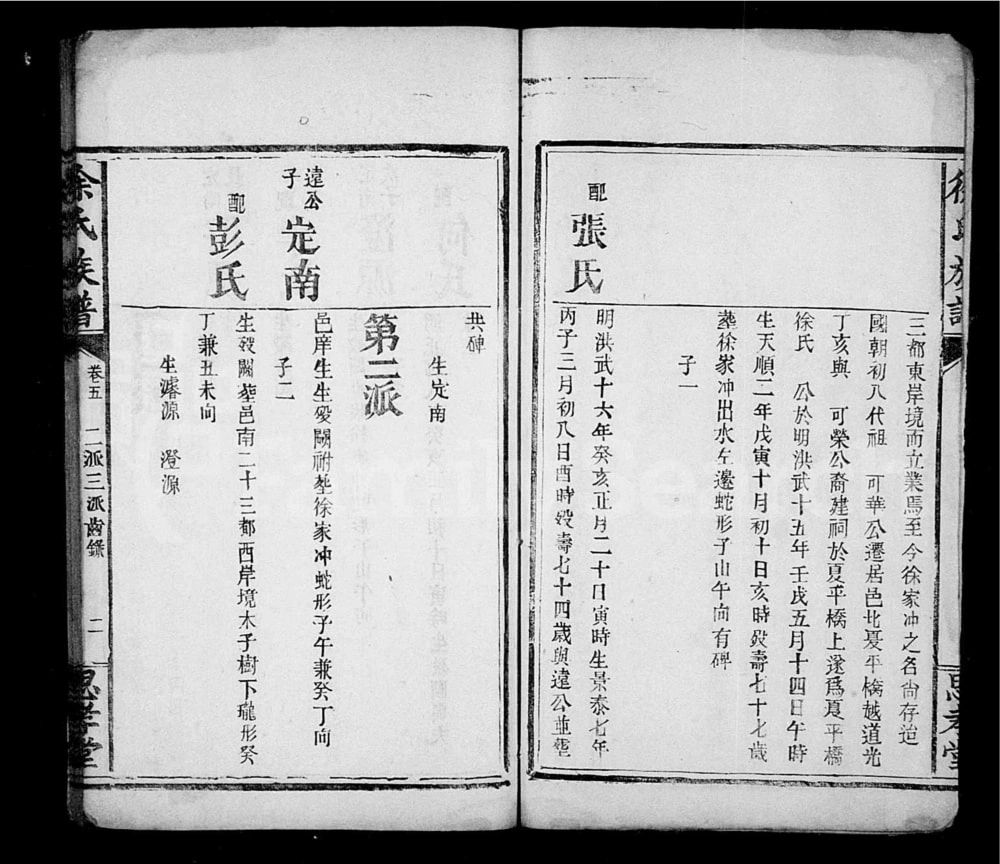 徐氏族譜
思孝堂
三都東岸境而立業焉至今徐家冲之名尙存迨
國朝初八代祖 可華公遷居邑北夏平橋越道光
丁亥與 可榮公裔建祠於夏平橋上遂爲夏平橋
徐氏 公於明洪武十五年壬戌五月十四日午時
生天順二年戊寅十月初十日亥時歿壽七十七歲
塟徐家冲出水左邊蛇形子山午向有碑
子一
配
張氏
明洪武十六年癸亥正月二十日寅時生景泰七年
丙子三月初八日酉時歿壽七十四歲與遠公並塟
共碑
生定南
第二派
遠公
子
定南
邑庠生生歿闕祔塟徐家冲蛇形子午兼癸丁向
子二
配
彭氏
生歿闕塟邑南二十三都西岸境木子樹下瓏形癸
丁兼丑未向
生濬源 澄源
徐氏族譜
卷五
二派三派齒錄
二
思孝堂